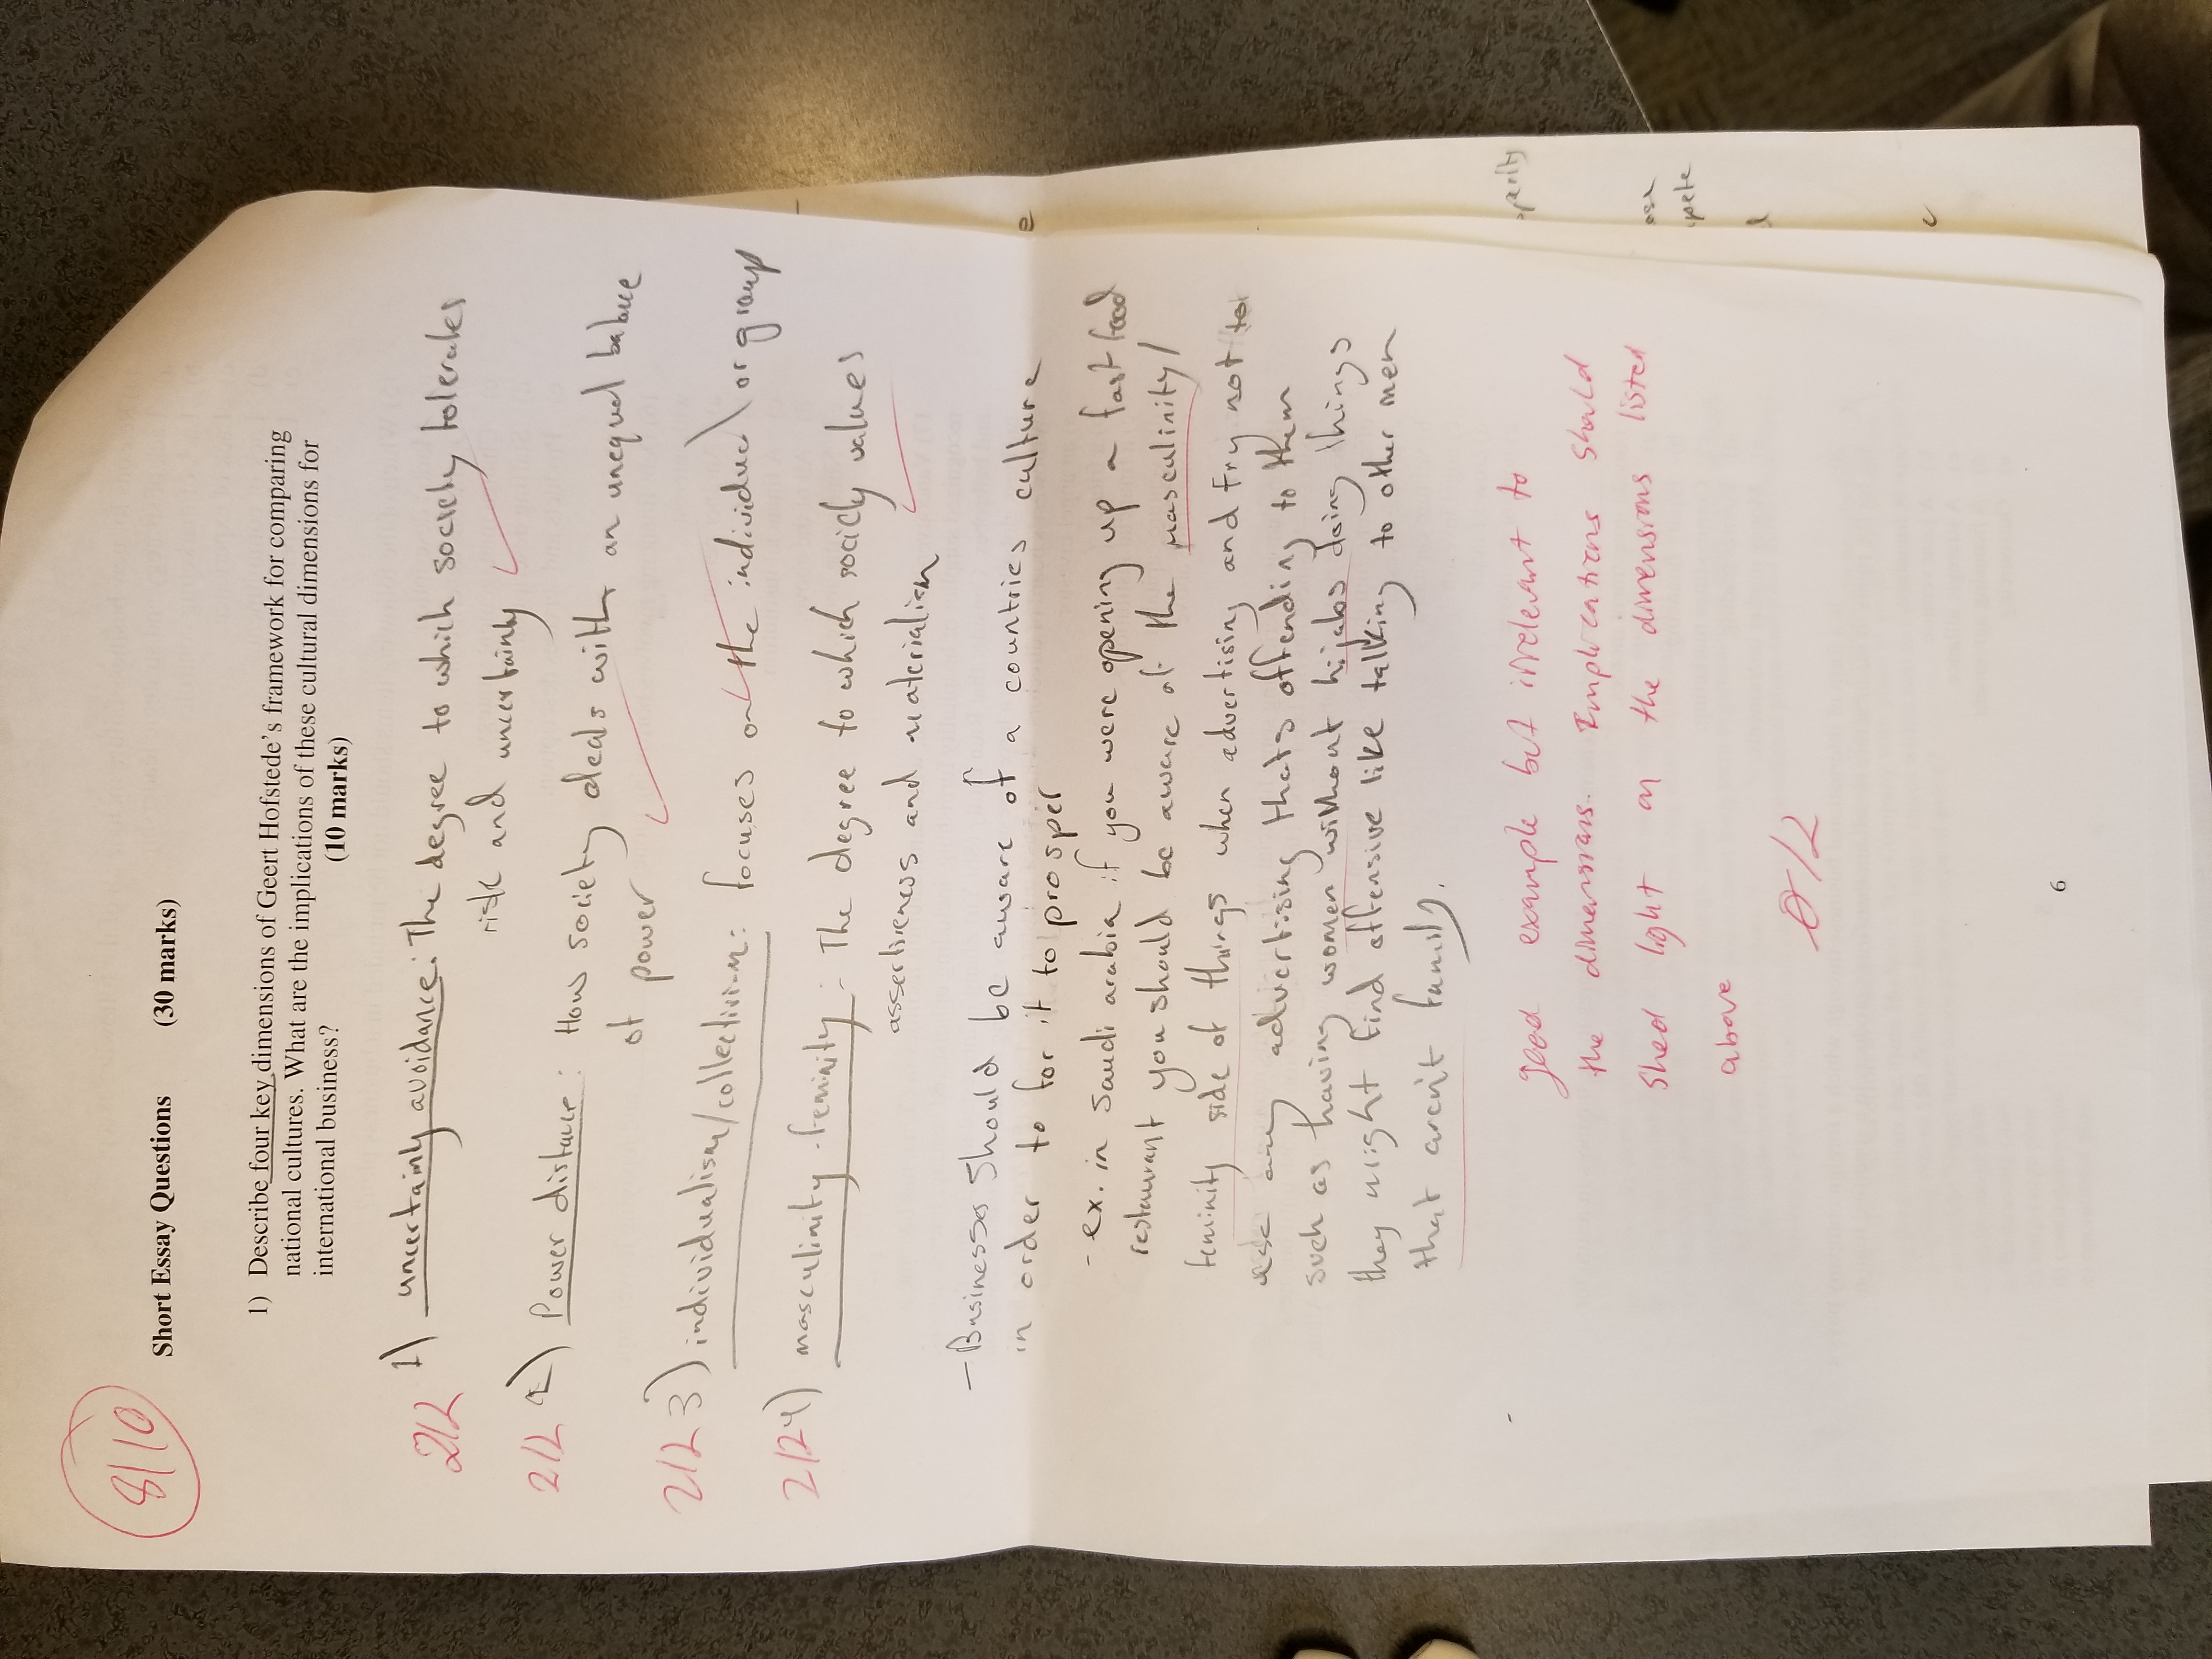 8/10
Short Essay Questions (30 marks)
1) Describe four key dimensions of Geert Hofstede's framework for comparing
national cultures. What are the implications of these cultural dimensions for
international business? (10 marks)
2/2 1) uncertainty avoidance: The degree to which society tolerates
risk and uncertainty
2/2 2) Power distance: How society deals with an unequal balance
of power
2/2 3) individualism/collectivism: focuses on the individual or group
2/2 4) masculinity-feminity: The degree to which society values
assertiveness and materialism
- Businesses should be aware of a countries culture
in order to for it to prosper
- ex. in Saudi arabia if you were opening up a fast food
restaurant you should be aware of the masculinity/
feminity side of things when advertising and try not to
use any advertising thats offending to them
such as having women without hijabs doing things
they might find offensive like talking to other men
that arent family.
good example but irrelevant to
the dimensions. Implications should
shed light on the dimensions listed
above
0/2
6